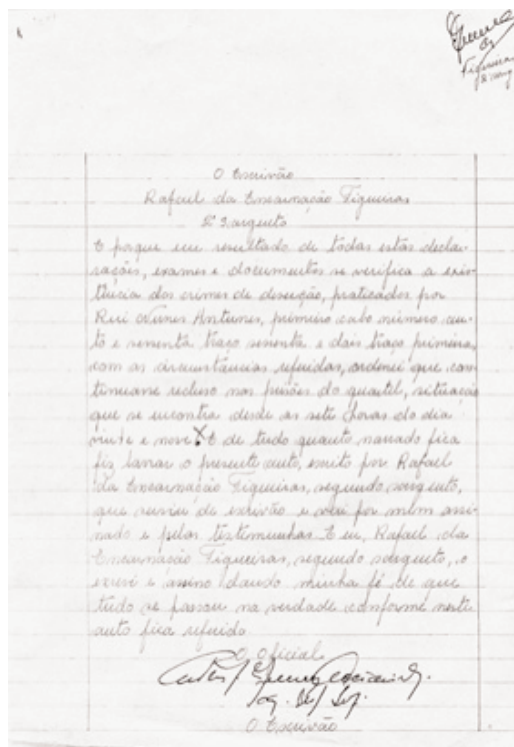 Figueiras
O Escrivão
Rafael da Encarnação Figueiras
2º Sargento
E porque em resultado de todas estas decla-
rações, exames e documentos se verifica a exis-
tência dos crimes de deserção, praticados por
Rui Nunes Antunes, primeiro cabo número cen-
to e sessenta traço sessenta e dois traço primeira
com as circunstâncias referidas, ordenei que con-
tinuasse recluso nas prisões do quartel, situação
que se encontra desde as sete horas do dia
vinte e nove X E de tudo quanto narrado fica
fiz lavrar o presente auto, escrito por Rafael
da Encarnação Figueiras, segundo sargento,
que serviu de escrivão e vai por mim assi-
nado e pelas testemunhas. E eu, Rafael da
Encarnação Figueiras, segundo sargento, o
escrevi e assino dando minha fé de que
tudo se passou na verdade conforme neste
auto fica referido
O Oficial
O Escrivão